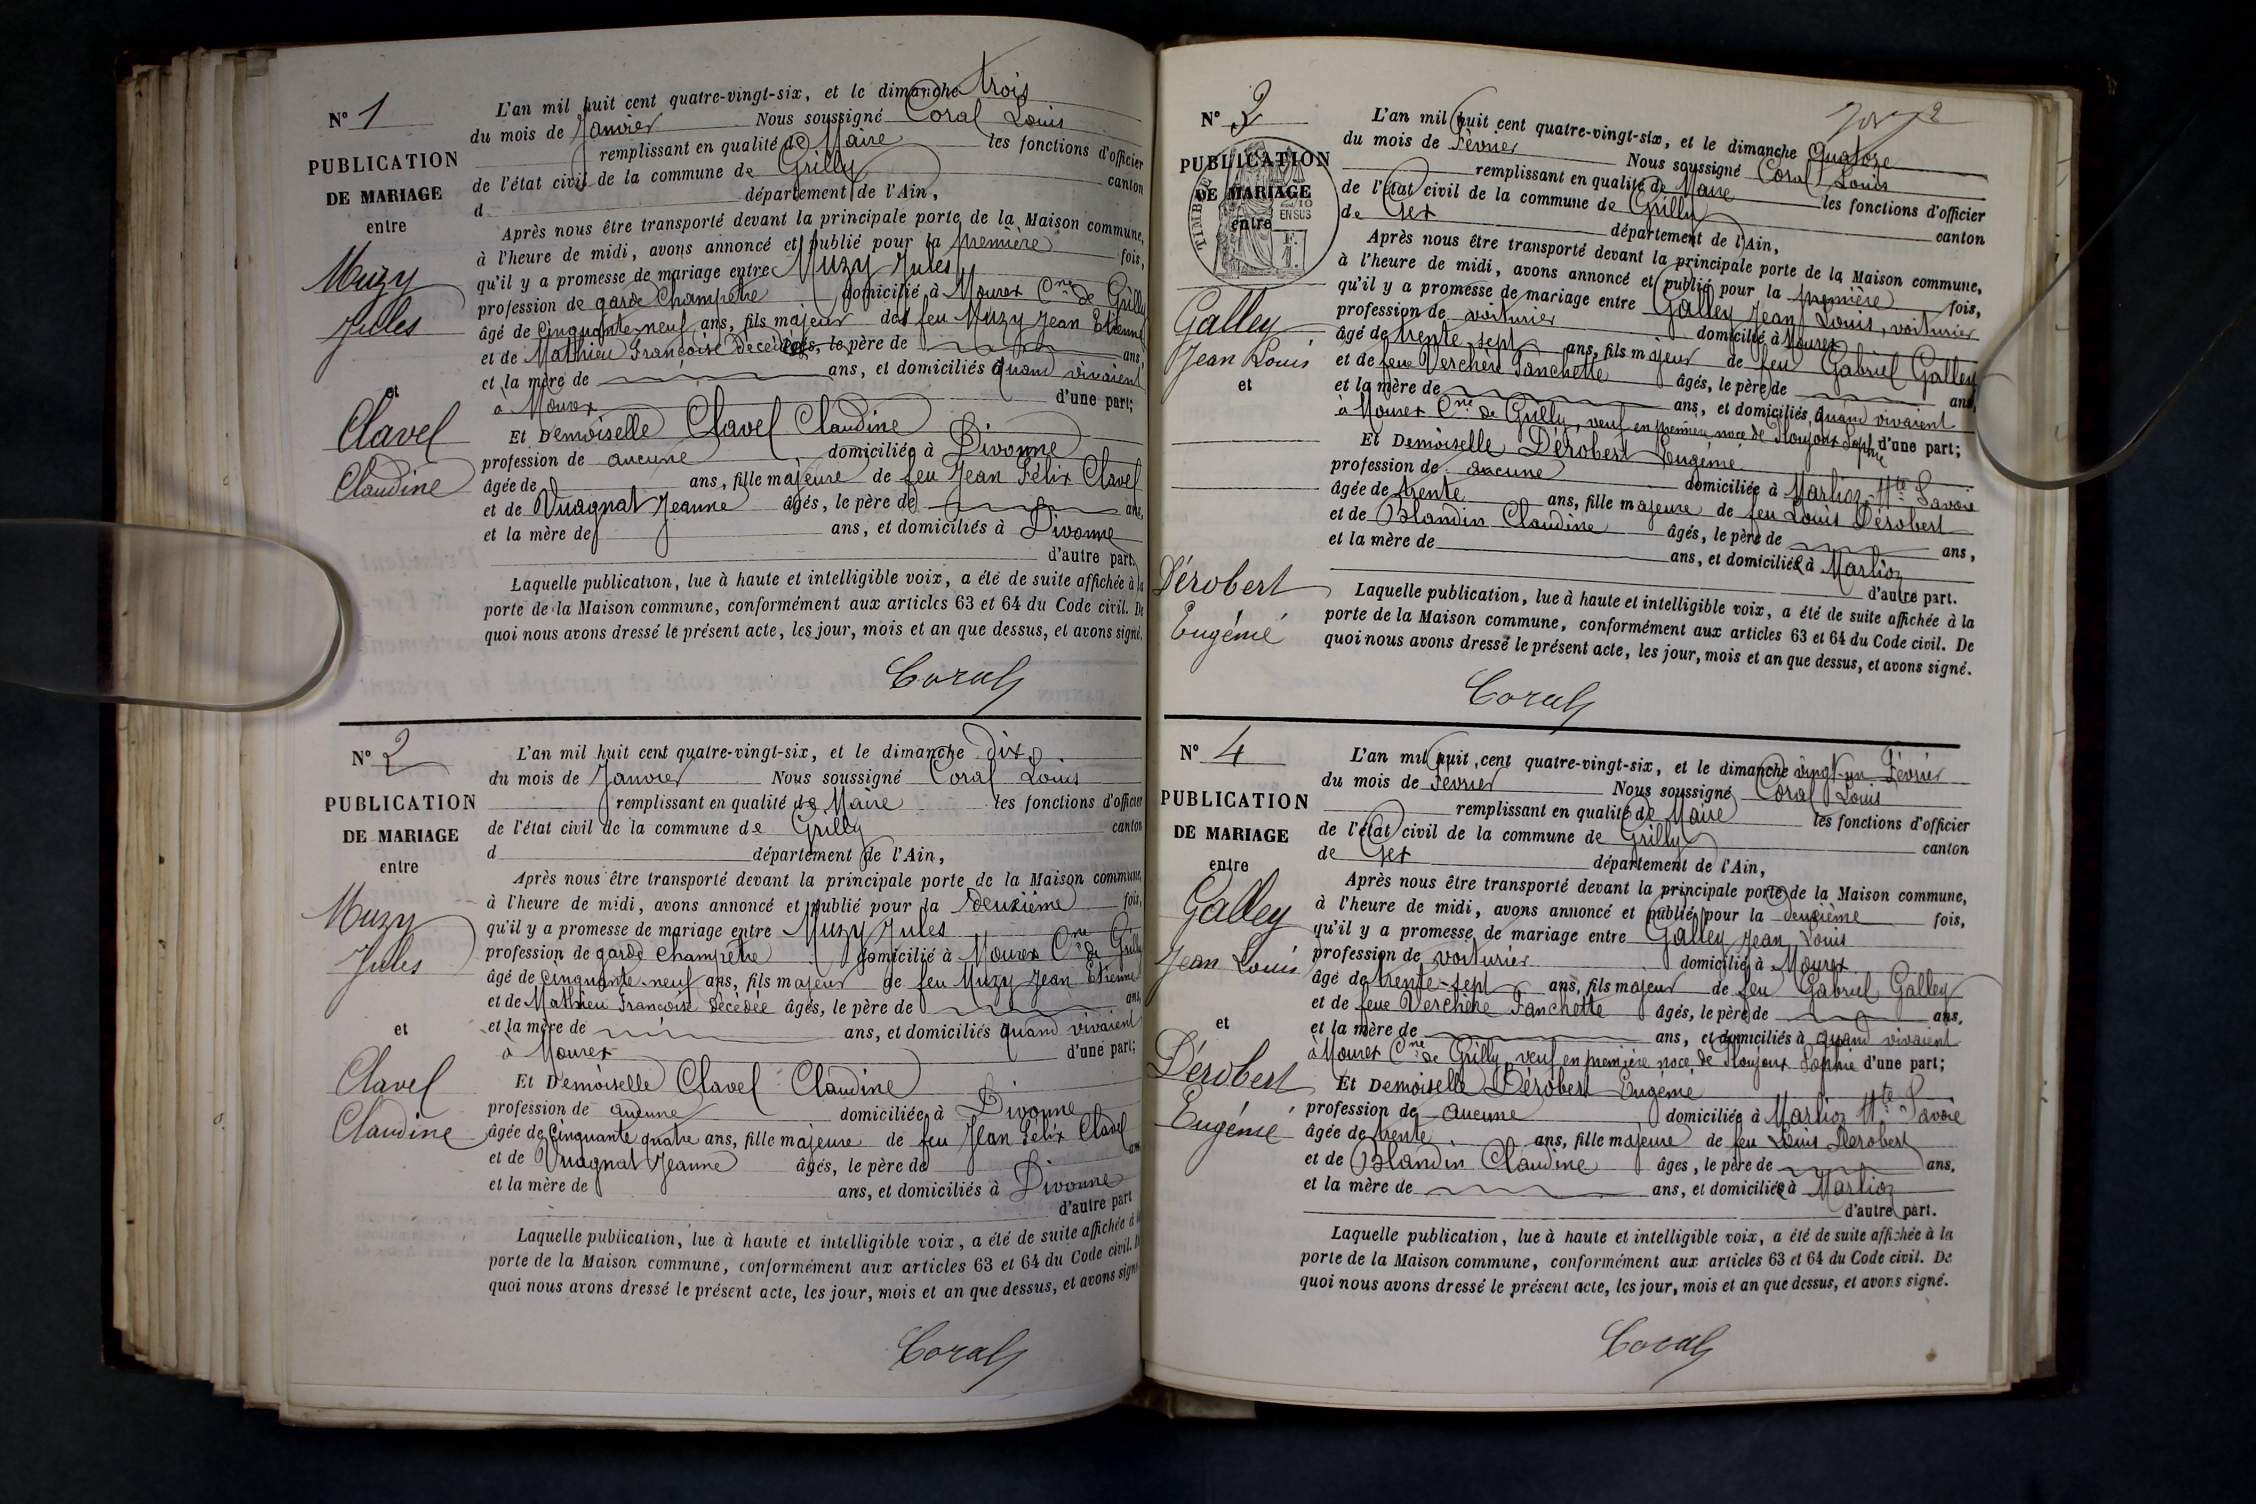 N° 1
PUBLICATION
DE MARIAGE
entre
Muzy
Jules
et
Clavel
Claudine
L'an mil huit cent quatre-vingt-six, et le dimanche trois
du mois de Janvier Nous soussigné Coral Louis
remplissant en qualité de Maire les fonctions d'officier
de l'état civil de la commune de Grilly canton
d département de l'Ain,
Après nous être transporté devant la principale porte de la Maison commune,
à l'heure de midi, avons annoncé et publié pour la première fois,
qu'il y a promesse de mariage entre Muzy Jules
profession de garde Champetre domicilié à Mourex Cne de Grilly
âgé de Cinquante neuf ans, fils majeur de feu Muzy Jean Etienne
et de Mathieu Françoise Décédée âgés, le père de ans,
et la mère de ans, et domiciliés quand vivaient
à Mourex d'une part;
Et Demoiselle Clavel Claudine
profession de aucune domiciliée à Divonne
âgée de ans, fille majeure de feu Jean Félix Clavel
et de Vuagnat Jeanne âgés, le père de ans,
et la mère de ans, et domiciliés à Divonne
d'autre part.
Laquelle publication, lue à haute et intelligible voix, a été de suite affichée à la
porte de la Maison commune, conformément aux articles 63 et 64 du Code civil. De
quoi nous avons dressé le présent acte, les jour, mois et an que dessus, et avons signé.
Coral
N° 2
PUBLICATION
DE MARIAGE
entre
Muzy
Jules
et
Clavel
Claudine
L'an mil huit cent quatre-vingt-six, et le dimanche dix
du mois de Janvier Nous soussigné Coral Louis
remplissant en qualité de Maire les fonctions d'officier
de l'état civil de la commune de Grilly canton
d département de l'Ain,
Après nous être transporté devant la principale porte de la Maison commune,
à l'heure de midi, avons annoncé et publié pour la deuxième fois,
qu'il y a promesse de mariage entre Muzy Jules
profession de garde Champetre domicilié à Mourex Cne de Grilly
âgé de Cinquante-neuf ans, fils majeur de feu Muzy Jean Etienne
et de Mathieu Françoise Décédée âgés, le père de ans,
et la mère de ans, et domiciliés quand vivaient
à Mourex d'une part;
Et Demoiselle Clavel Claudine
profession de aucune domiciliée à Divonne
âgée de Cinquante quatre ans, fille majeure de feu Jean Félix Clavel
et de Vuagnat Jeanne âgés, le père de ans
et la mère de ans, et domiciliés à Divonne
d'autre part
Laquelle publication, lue à haute et intelligible voix, a été de suite affichée à la
porte de la Maison commune, conformément aux articles 63 et 64 du Code civil. De
quoi nous avons dressé le présent acte, les jour, mois et an que dessus, et avons signé
Coral
N° 3
PUBLICATION
DE MARIAGE
entre
Galley
Jean Louis
et
Dérobert
Eugénie
L'an mil huit cent quatre-vingt-six, et le dimanche Quatorze
du mois de Février Nous soussigné Coral Louis
remplissant en qualité de Maire les fonctions d'officier
de l'état civil de la commune de Grilly canton
de Gex département de l'Ain,
Après nous être transporté devant la principale porte de la Maison commune,
à l'heure de midi, avons annoncé et publié pour la première fois,
qu'il y a promesse de mariage entre Galley Jean Louis, voiturier
profession de voiturier domicilié à Mourex
âgé de trente-sept ans, fils majeur de feu Gabriel Galley
et de feue Verchère Fanchette âgés, le père de ans,
et la mère de ans, et domiciliés quand vivaient
à Mourex Cne de Grilly, veuf en première noce de Ploujoux Sophie d'une part;
Et Demoiselle Dérobert Eugénie
profession de aucune domiciliée à Marlioz Hte Savoie
âgée de trente ans, fille majeure de feu Louis Dérobert
et de Blandin Claudine âgés, le père de ans,
et la mère de ans, et domiciliée à Marlioz
d'autre part.
Laquelle publication, lue à haute et intelligible voix, a été de suite affichée à la
porte de la Maison commune, conformément aux articles 63 et 64 du Code civil. De
quoi nous avons dressé le présent acte, les jour, mois et an que dessus, et avons signé.
Coral
N° 4
PUBLICATION
DE MARIAGE
entre
Galley
Jean Louis
et
Dérobert
Eugénie
L'an mil huit cent quatre-vingt-six, et le dimanche vingt-un Février
du mois de Février Nous soussigné Coral Louis
remplissant en qualité de Maire les fonctions d'officier
de l'état civil de la commune de Grilly canton
de Gex département de l'Ain,
Après nous être transporté devant la principale porte de la Maison commune,
à l'heure de midi, avons annoncé et publié pour la deuxième fois,
qu'il y a promesse de mariage entre Galley Jean Louis
profession de voiturier domicilié à Mourex
âgé de trente-sept ans, fils majeur de feu Gabriel Galley
et de feue Verchère Fanchette âgés, le père de ans,
et la mère de ans, et domiciliés à quand vivaient
à Mourex Cne de Grilly, veuf en première noce de Ploujoux Sophie d'une part;
Et Demoiselle Dérobert Eugénie
profession de aucune domiciliée à Marlioz Hte Savoie
âgée de trente ans, fille majeure de feu Louis Dérobert
et de Blandin Claudine âgés, le père de ans,
et la mère de ans, et domiciliée à Marlioz
d'autre part.
Laquelle publication, lue à haute et intelligible voix, a été de suite affichée à la
porte de la Maison commune, conformément aux articles 63 et 64 du Code civil. De
quoi nous avons dressé le présent acte, les jour, mois et an que dessus, et avons signé.
Coral